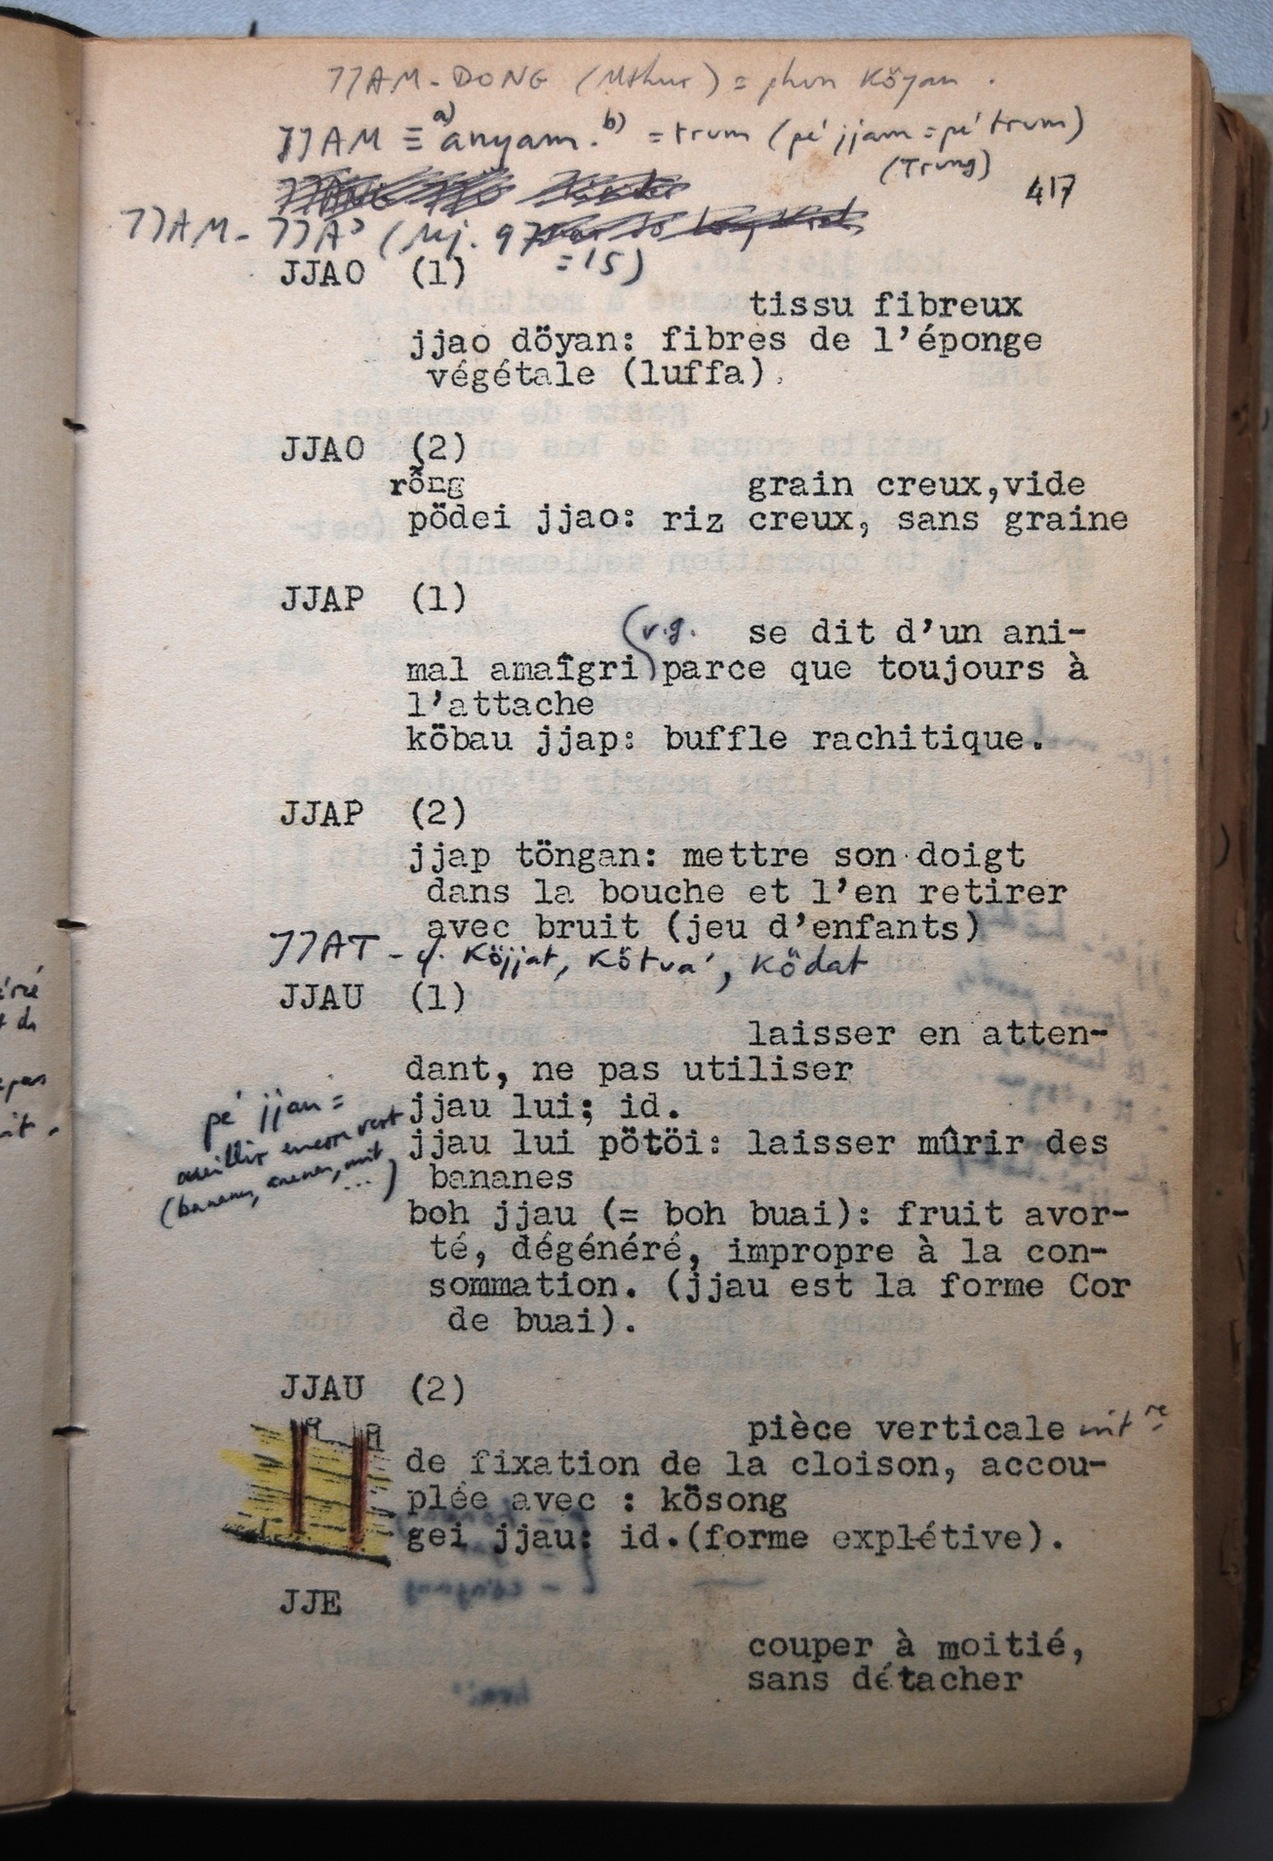 JJAM-DONG (Mthur) = phun köyan.
JJAM ≡ a) anyam. b) = trum (pé jjam = pé trum)
(Trung)
417
JJAM-JJA
= 15)
JJAO (1)
tissu fibreux
jjao döyan: fibres de l'éponge
végétale (luffa).
JJAO (2)
rỗng grain creux,vide
pödei jjao: riz creux, sans graine
JJAP (1)
(v.g. se dit d'un ani-
mal amaîgri) parce que toujours à
l'attache
köbau jjap: buffle rachitique.
JJAP (2)
jjap töngan: mettre son doigt
dans la bouche et l'en retirer
avec bruit (jeu d'enfants)
JJAT - cf. köjjat, kötva', ködat
JJAU (1)
laisser en atten-
dant, ne pas utiliser
jjau lui; id.
jjau lui pötöi: laisser mûrir des
bananes
boh jjau (= boh buai): fruit avor-
té, dégénéré, impropre à la con-
sommation. (jjau est la forme Cor
de buai).
pé jjau =
cueillir encore vert
(bananes, ananas, mit
...)
JJAU (2)
pièce verticale intre
de fixation de la cloison, accou-
plée avec : kösong
gei jjau: id.(forme explétive).
JJE
couper à moitié,
sans détacher